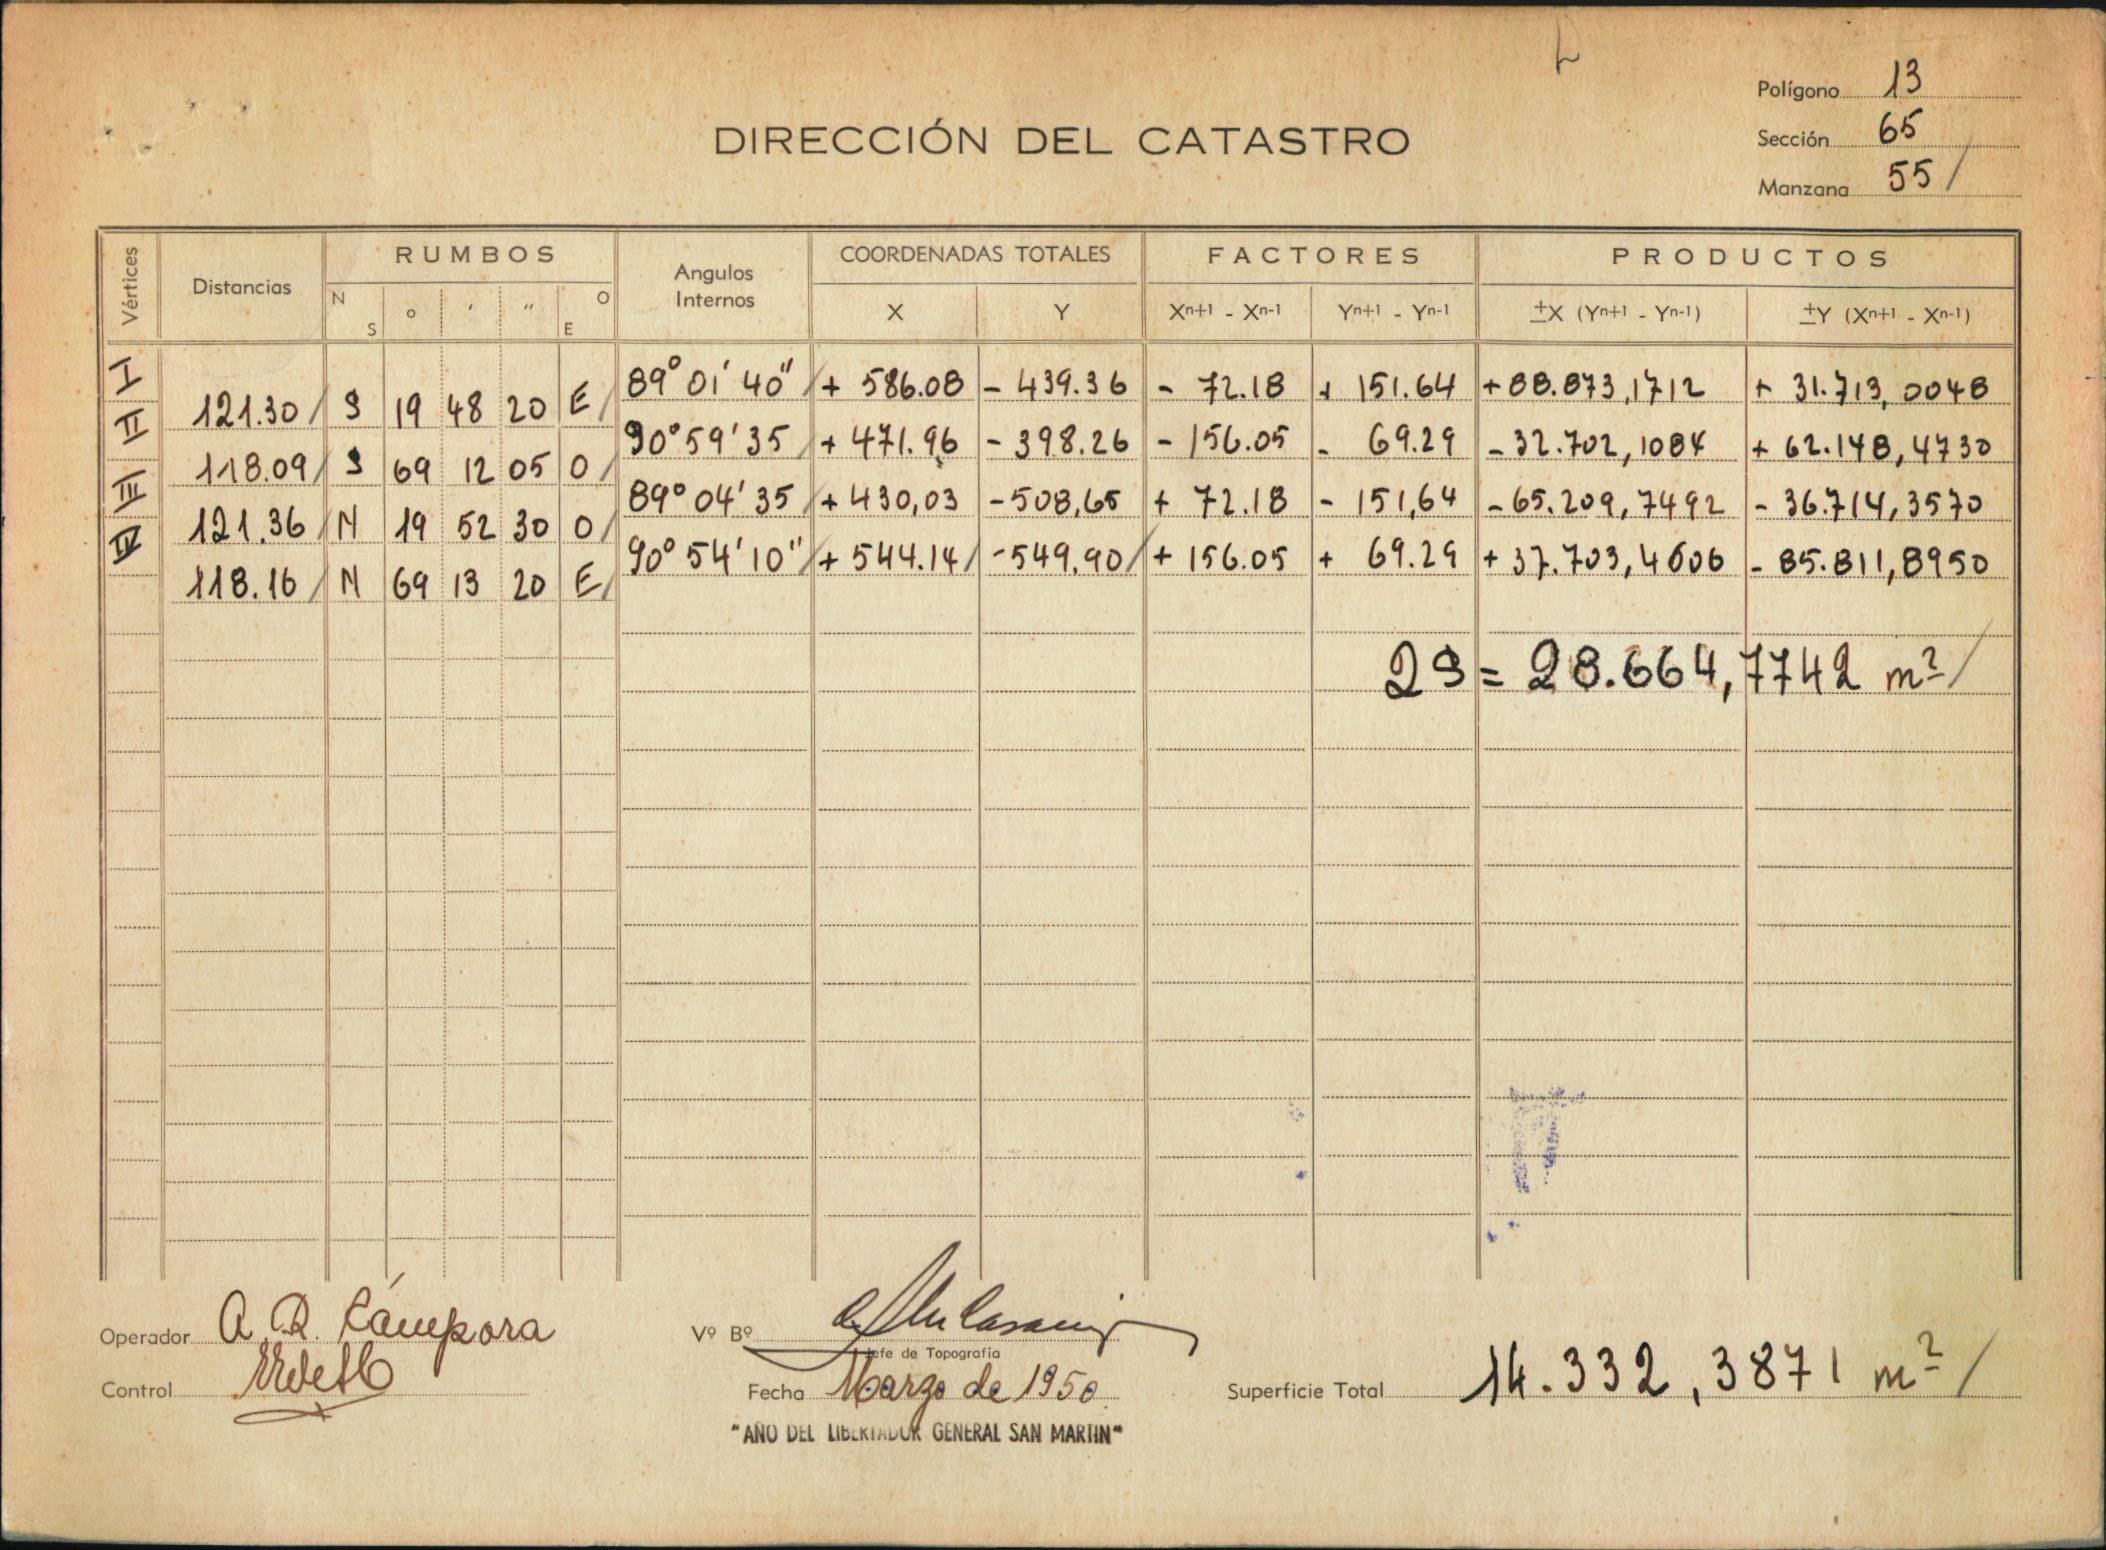 Polígono 13
DIRECCIÓN DEL CATASTRO
Sección 65
Manzana 55 /
Vértices Distancias RUMBOS Angulos Internos COORDENADAS TOTALES FACTORES PRODUCTOS
N S ° ' " O E X Y Xn+1 - Xn-1 Yn+1 - Yn-1 ±X (Yn+1 - Yn-1) ±Y (Xn+1 - Xn-1)
I 89° 01' 40" / + 586.08 - 439.36 - 72.18 + 151.64 + 88.873,1712 + 31.713,0048
121.30 / S 19 48 20 E /
II 90° 59' 35 / + 471.96 - 398.26 - 156.05 - 69.29 - 32.702,1084 + 62.148,4730
118.09 / S 69 12 05 O /
III 89° 04' 35 / + 430,03 - 508,65 + 72.18 - 151,64 - 65.209,7492 - 36.714,3570
121.36 / N 19 52 30 O /
IV 90° 54' 10" / + 544.14 / - 549.90 / + 156.05 + 69.29 + 37.703,4606 - 85.811,8950
118.16 / N 69 13 20 E /
2S = 28.664,7742 m² /
Operador A. R. Cámpora
Vº Bº
Jefe de Topografía
Control
Fecha Marzo de 1950.
Superficie Total 14.332,3871 m² /
"AÑO DEL LIBERTADOR GENERAL SAN MARTIN"